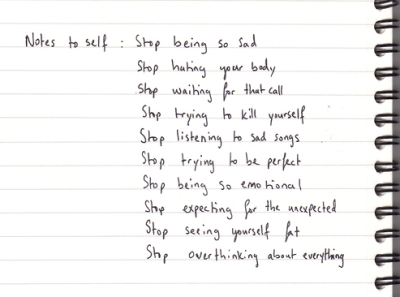 Notes to self : Stop being so sad
Stop hating your body
Stop waiting for that call
Stop trying to kill yourself
Stop listening to sad songs
Stop trying to be perfect
Stop being so emotional
Stop expecting for the unexpected
Stop seeing yourself fat
Stop overthinking about everything